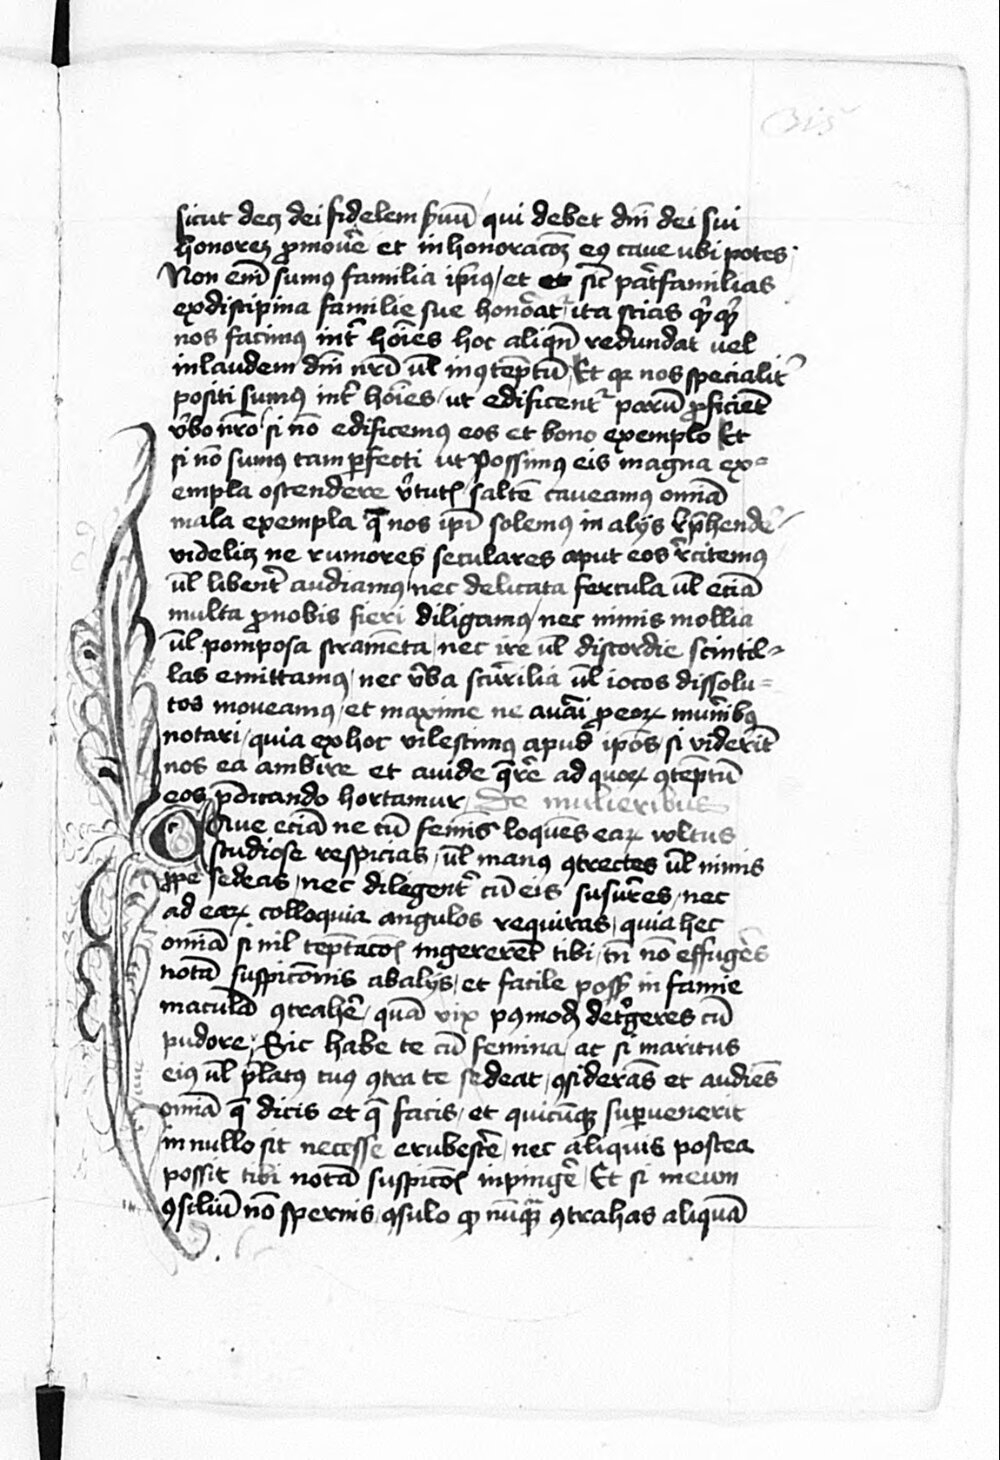 sicut decꝫ dei fidelem ẜuū qui debet dnī dei sui
honoreꝫ ꝓmouē et inhonoracōꝫ eꝰ caue ubi potes
Non enī sumꝰ familia ipīꝰ et sic̄ pat̄familias
ex discipina familie sue honōat᷑ ita scias
nos facimꝰ int̄ hoīes hoc aliqn̄ redundat uel
in laudem dnī nrī ūl in ꝯtēptū Et qꝛ nos specialit̄
positi sumꝰ int̄ hoīes ut edificent᷑ parū ꝓficiēt
v̄bo nr̄o si nō edificemꝰ eos et bono exemplo Et
si nō sumꝰ tam ꝑfecti ut possimꝰ eis magna ex=
empla ostendere v̄tutꝭ saltē caueamꝰ omīa
mala exempla q̄ nos ipī solemꝰ in alijs rep̄hendē
videlicꝫ ne rumores seculares aput eos recitemꝰ
ūl libent̄ audiamꝰ nec delicata fercula ūl eciā
multa ꝓ nobis fieri diligamꝰ nec nimis mollia
ūl pomposa stramēta nec ire ūl discordie scintil=
las emittamꝰ nec v̄ba scurrilia ūl iocos dissolu=
tos moueamꝰ et maxime ne auāi ꝓ eoꝝ mun̄ibꝰ
notari quia ex hoc vilescimꝰ apud ipōs si viderīt
nos ea ambire et auide q̄rē ad quoꝝ ꝯtēptū
eos p̄dicando hortamur De mulieribus
Caue eciā ne cū femīs loquēs eaꝝ vultus
studiose respicias ūl manꝰ ꝯtrectes ūl nimis
ꝓpe sedeas nec diligent̄ cū eis susurres nec
ad eaꝝ colloquia angulos requiras quia hec
omīa si nil tēptacōꝭ ingererēt tibi tn̄ nō effugēs
notā suspicōnis ab alijs et facile possꝫ infamie
maculā ꝯtrahē quā vix pꝰmodū det̄geres cū
pudore Sic habe te cū femina ac si maritus
eiꝰ ūl p̄latꝰ tuꝰ ꝯtra te sedeat ꝯsiderās et audiēs
omīa q̄ dicis et q̄ facis et quicūqꝫ suꝑuenerit
in nullo sit necesse erubescē nec aliquis postea
possit tibi notā suspicōꝭ inpingē Et si meum
ꝯsiliū nō spernis ꝯsulo ꝙ nūquā ꝯtrahas aliquā